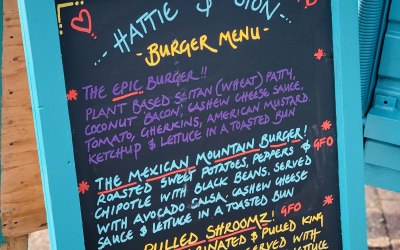 HATTIE & SION
- BURGER MENU -
THE EPIC BURGER!!
PLANT BASED SEITAN (WHEAT) PATTY,
COCONUT BACON, CASHEW CHEESE SAUCE,
TOMATO, GHERKINS, AMERICAN MUSTARD.
KETCHUP & LETTUCE IN A TOASTED BUN
THE MEXICAN MOUNTAIN BURGER!
ROASTED SWEET POTATOES, PEPPERS & GFO
CHIPOTLE WITH BLACK BEANS. SERVED
WITH AVOCADO SALSA, CASHEW CHEESE
SAUCE & LETTUCE IN A TOASTED BUN
PULLED SHROOMZ! GFO
& PULLED KING
SERVED WITH